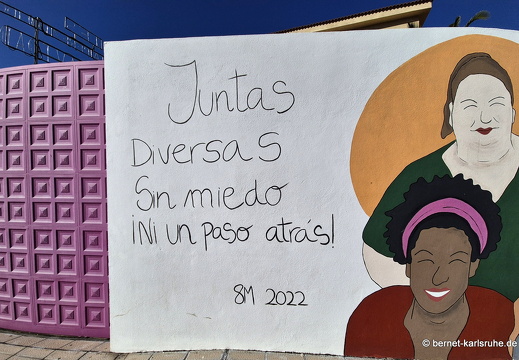 Juntas
Diversas
Sin miedo
¡Ni un paso atrás!
8M 2022
© bernet-karlsruhe.de